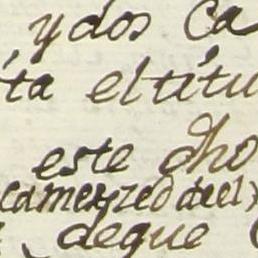 y dos Ca
ta el titu
este dho
la merzed de el
de que